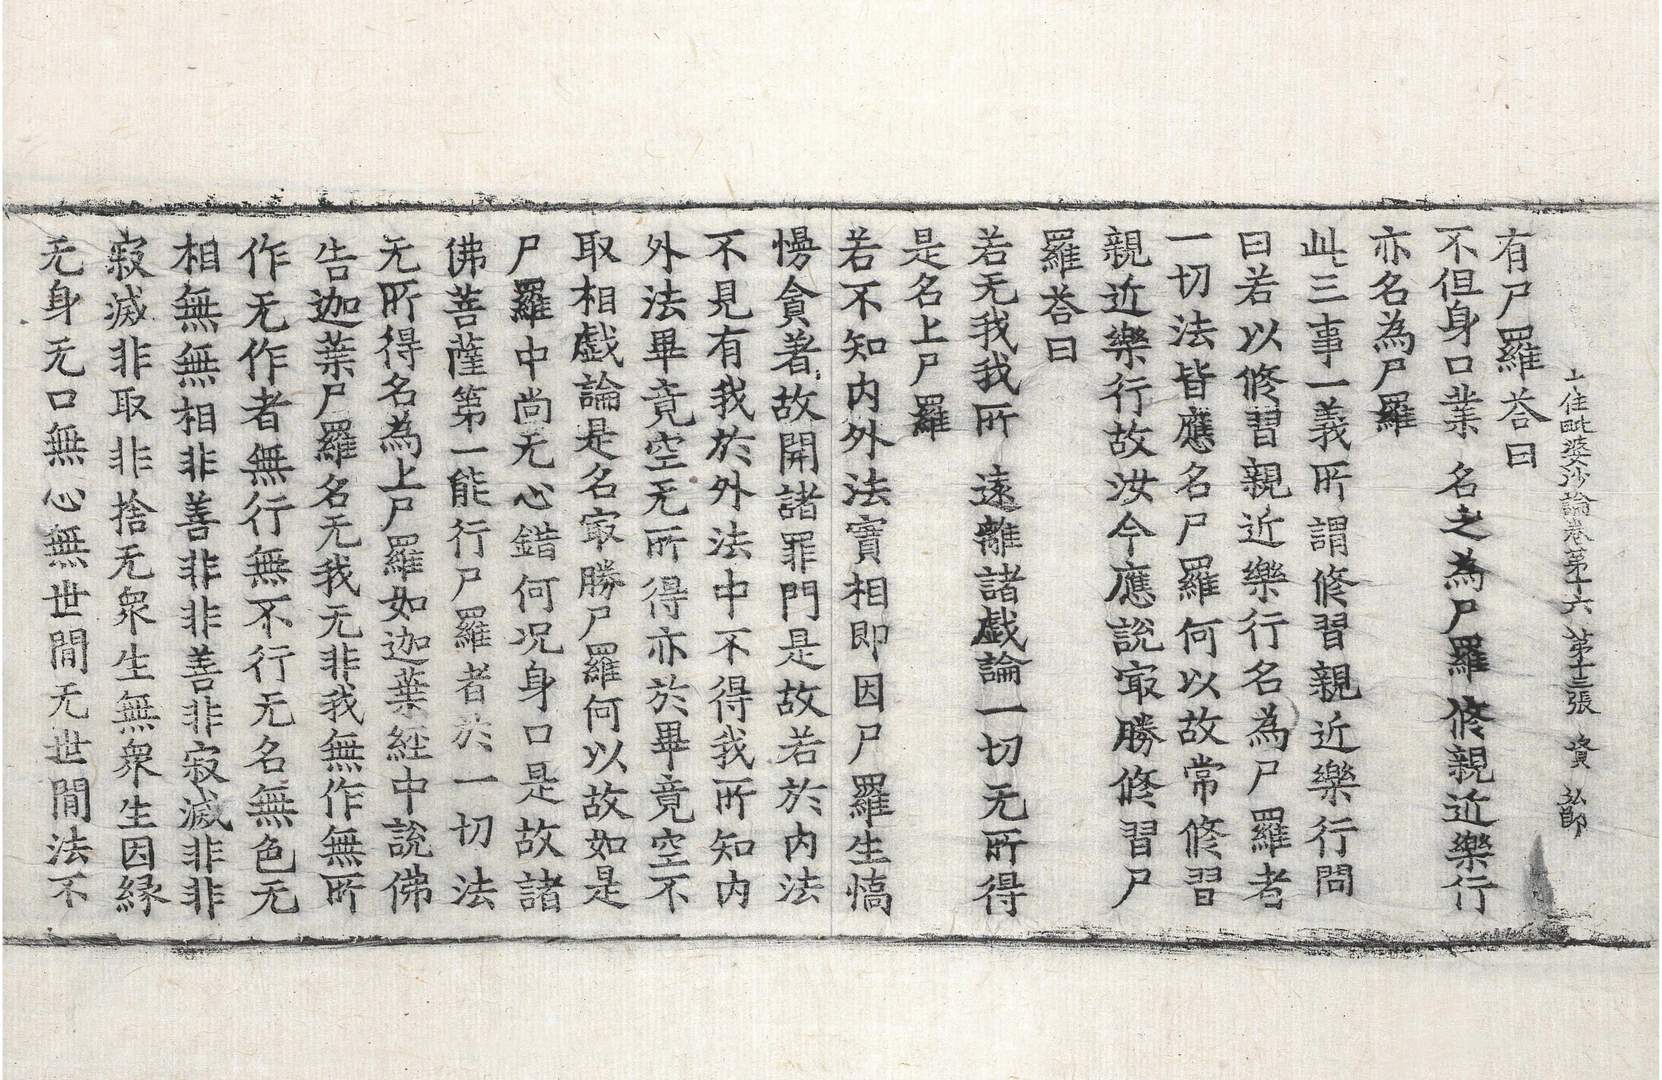 十住毗婆沙論卷第十六 第十三張 資 弘郎
有尸羅荅曰
不但身口業 名之為尸羅 修親近樂行
亦名為尸羅
此三事一義所謂修習親近樂行問
曰若以修習親近樂行名為尸羅者
一切法皆應名尸羅何以故常修習
親近樂行故汝今應說㝡勝修習尸
羅荅曰
若无我我所 遠離諸戲論 一切无所得
是名上尸羅
若不知内外法實相即因尸羅生憍
慢貪著故開諸罪門是故若於内法
不見有我於外法中不得我所知内
外法畢竟空无所得亦於畢竟空不
取相戲論是名㝡勝尸羅何以故如是
尸羅中尚无心錯何况身口是故諸
佛菩薩第一能行尸羅者於一切法
无所得名為上尸羅如迦葉經中說佛
告迦葉尸羅名无我无非我無作無所
作无作者無行無不行无名無色无
相無無相非善非非善非寂滅非非
寂滅非取非捨无衆生無衆生因緣
无身无口無心無世間无世間法不